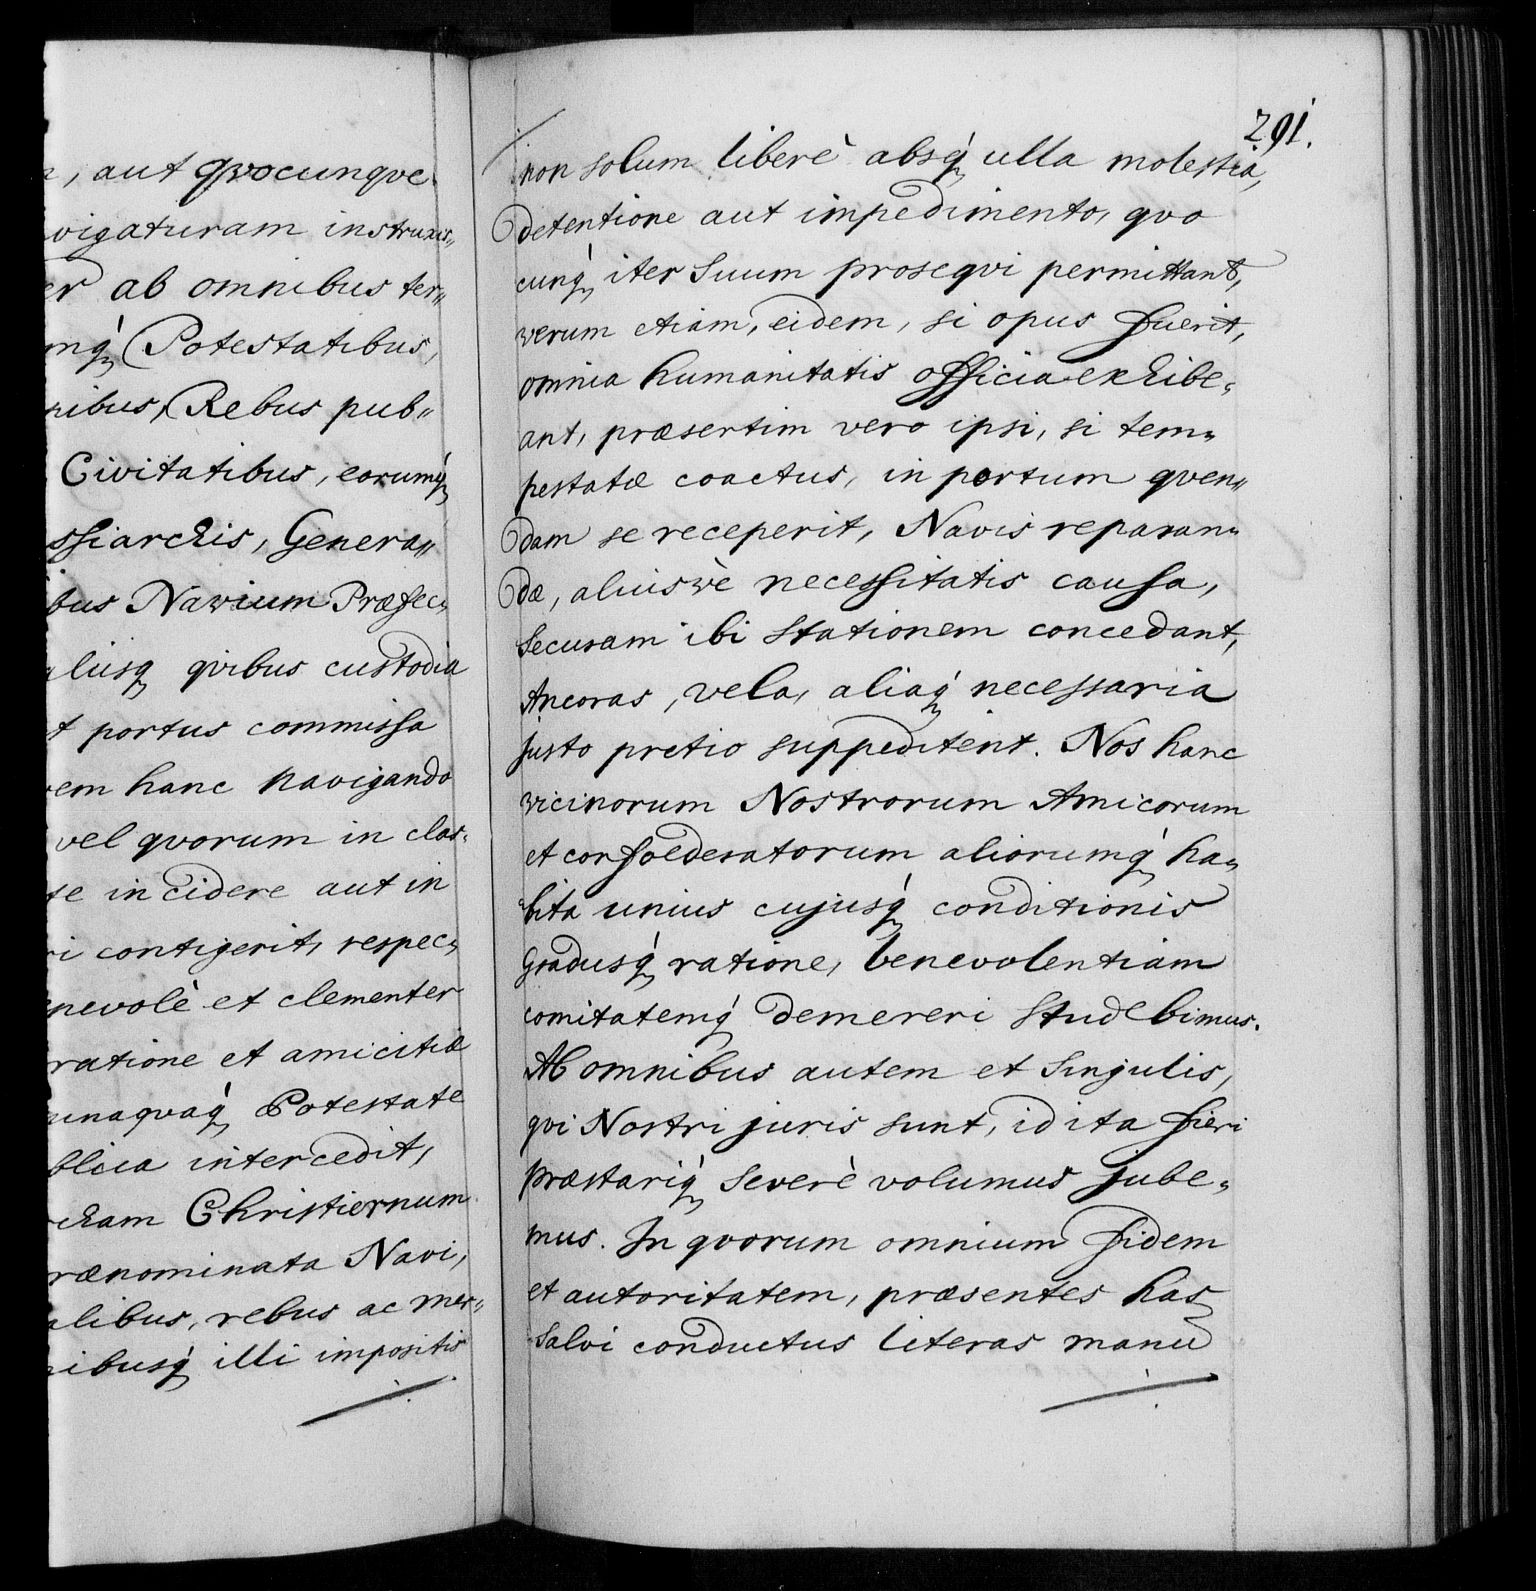 aut qvocunqve
vigaturam instruxis„
er ab omnibus ter„
mq́ Potestatibus,
nibus, Rebus pub„
Civitatibus, eorumq́
ssiarchis, Genera„
bus Navium Præfec„
aliisq qvibus custodia
t portus commissa
em hanc navigando
vel qvorum in clas„
te incidere aut in
ri contigerit, respec„
nevolè et clementer
ratione et amicitiæ
unaqvaq́ Potestate
blica intercedit,
cham Christiernum
rænominata Navi,
alibus, rebus ac mer„
nibusq́ illi impositis
291.
non solum liberè absq́ ulla molestiâ,
detentione aut impedimento, qvo
cunq́ iter suum proseqvi permittant,
verum etiam, eidem, si opus fuerit,
omnia humanitatis officia exhibe„
ant, præsertim vero ipsi, si tem„
pestate coactus, in portum qven„
dam se receperit, Navis reparan„
dæ, aliusvè necessitatis causa,
securam ibi stationem concedant,
Ancoras, vela, aliaq́ necessaria
justo pretio suppeditent. Nos hanc
vicinorum Nostrorum Amicorum
et confoederatorum aliorumq́ ha„
bita unius cujusq́ conditionis
gradusq́ ratione, benevolentiam
comitatemq́ demereri studebimus.
Ab omnibus autem et singulis,
qvi Nostri juris sunt, id ita fieri
præstariq́ severè volumus jube„
mus. In qvorum omnium fidem
et autoritatem, præsentes has
salvi conductus literas manu